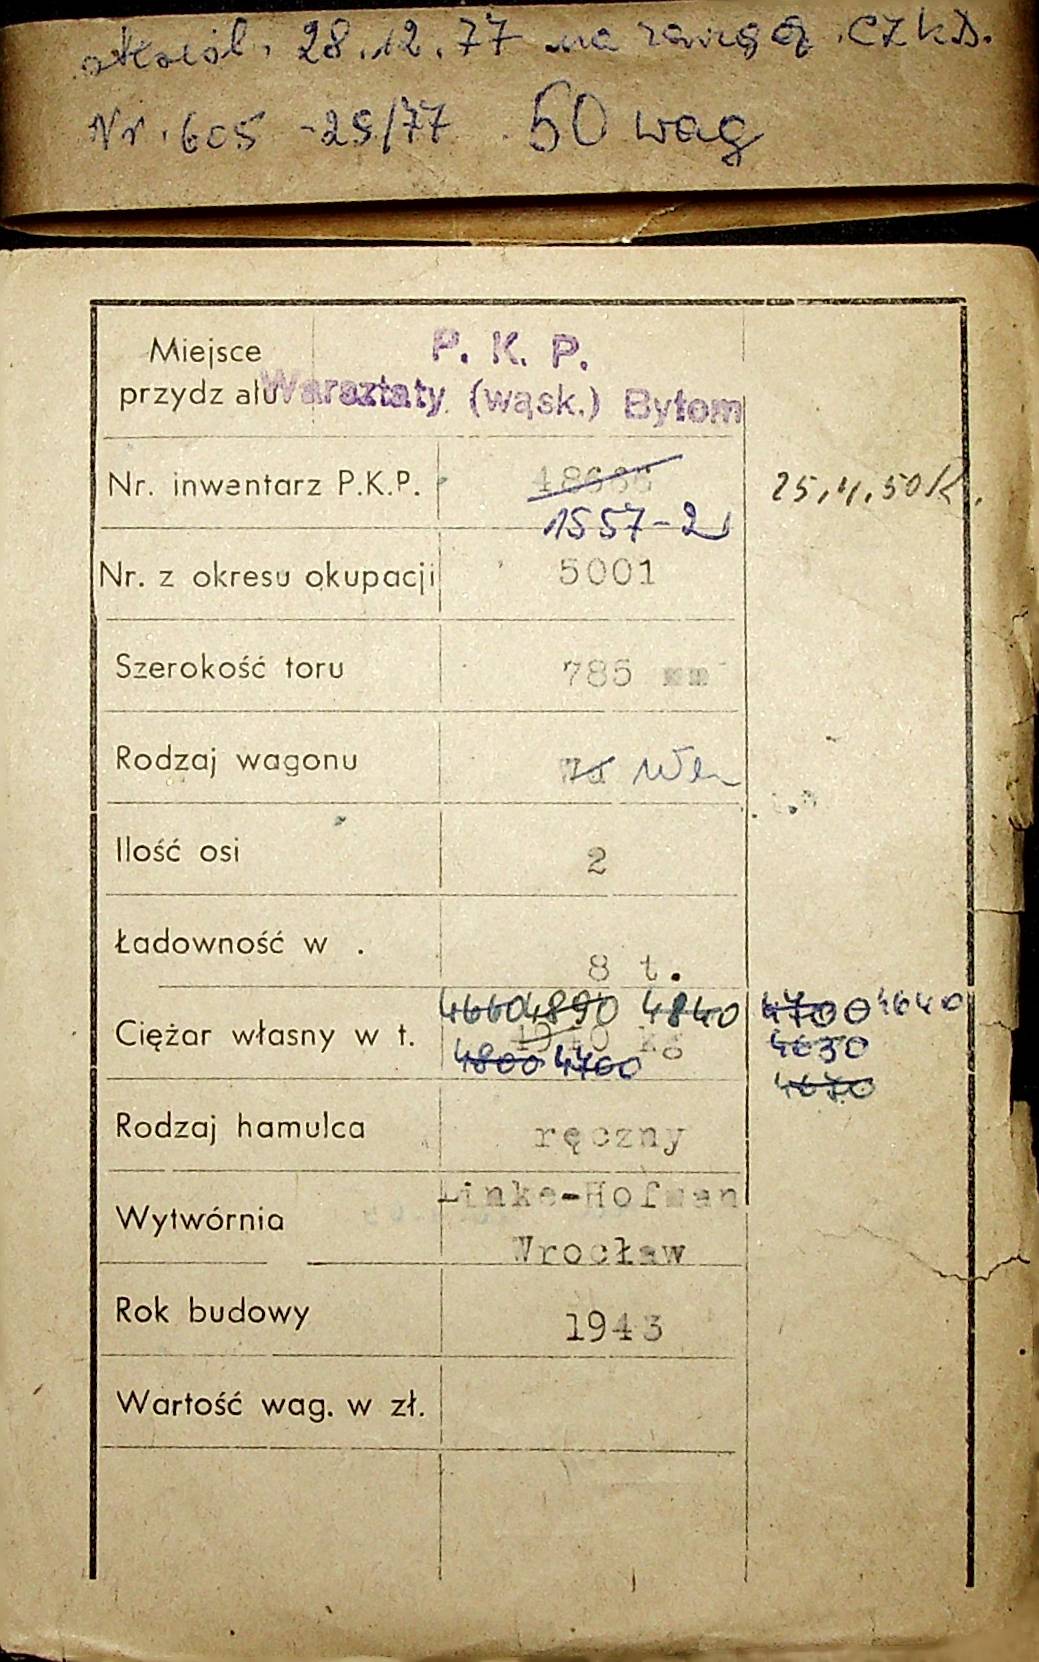 28.12.77 na
Nr. 605 -25/77 50 wag
Miejsce
przydz ału
P. K. P.
Warsztaty (wąsk.) Bytom
Nr. inwentarz P.K.P.
1557-2
Nr. z okresu okupacji 5001
Szerokość toru 785 mm
Rodzaj wagonu
Ilość osi 2
Ładowność w . 8 t.
4660 4890 4840 4700 4640
Ciężar własny w t. kg 4630
4800 4760 4670
Rodzaj hamulca ręczny
Wytwórnia
Linke-Hofman
Wrocław
Rok budowy 1943
Wartość wag. w zł.